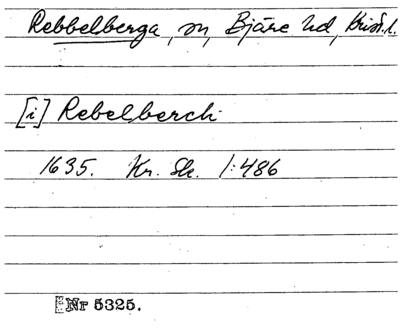 Rebbelberga, sn, Bjäre hd, Krist. l.
[i] Rebelberch
1635. Kr. Sk. 1:486
Nr 5325.